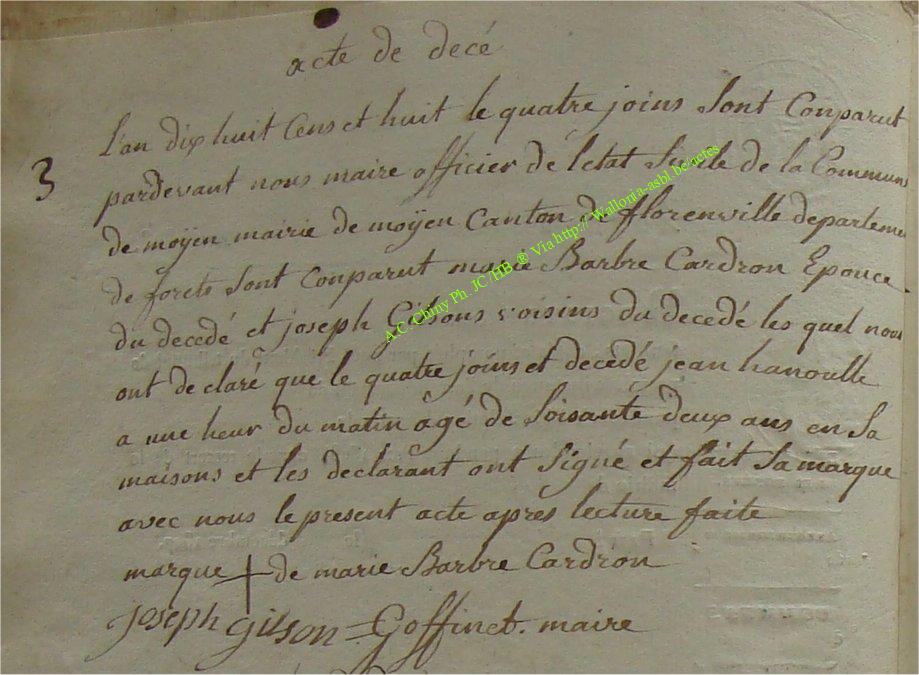 acte de decé
3
L'an dix huit Cens et huit le quatre joins Sont Conparut
pardevant nous maire officier de l'etat Sivile de la Commun
de moÿen mairie de moÿen Canton de florenville departemen
de forets Sont Conparut marie Barbre Cardron Epouce
du decedé et joseph Gilsons voisins du decedé les quel nous
ont declaré que le quatre joins et decedé jean hanoulle
a une heur du matin âgé de Soisante deux ans en Sa
maisons et les declarant ont Signé et fait Sa marque
avec nous le present acte aprés lecture faite
marque + de marie Barbre Cardron
Joseph Gilson = Goffinet. maire
A.C. Chiny Ph. JC /HB ® Via http://Wallonia-asbl.be/actes